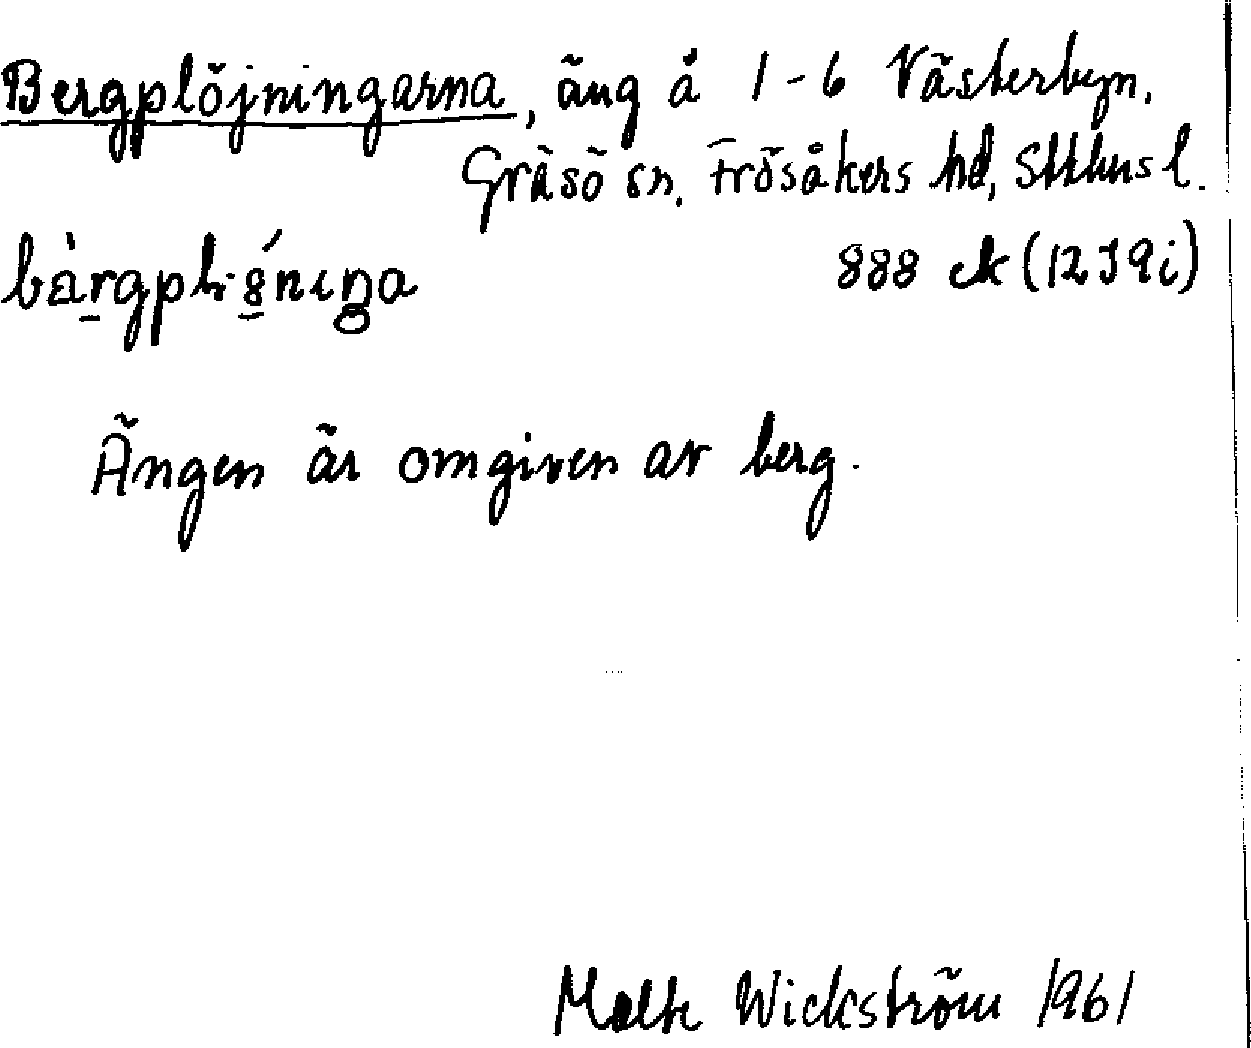 Bergplöjningarna, äng å 1-6 Västerbyn,
Gräsö sn. Frösåkers hd, Sthlms l.
888 ek (12I9i)
Ängen är omgiven av berg.
Malte Wickström 1961